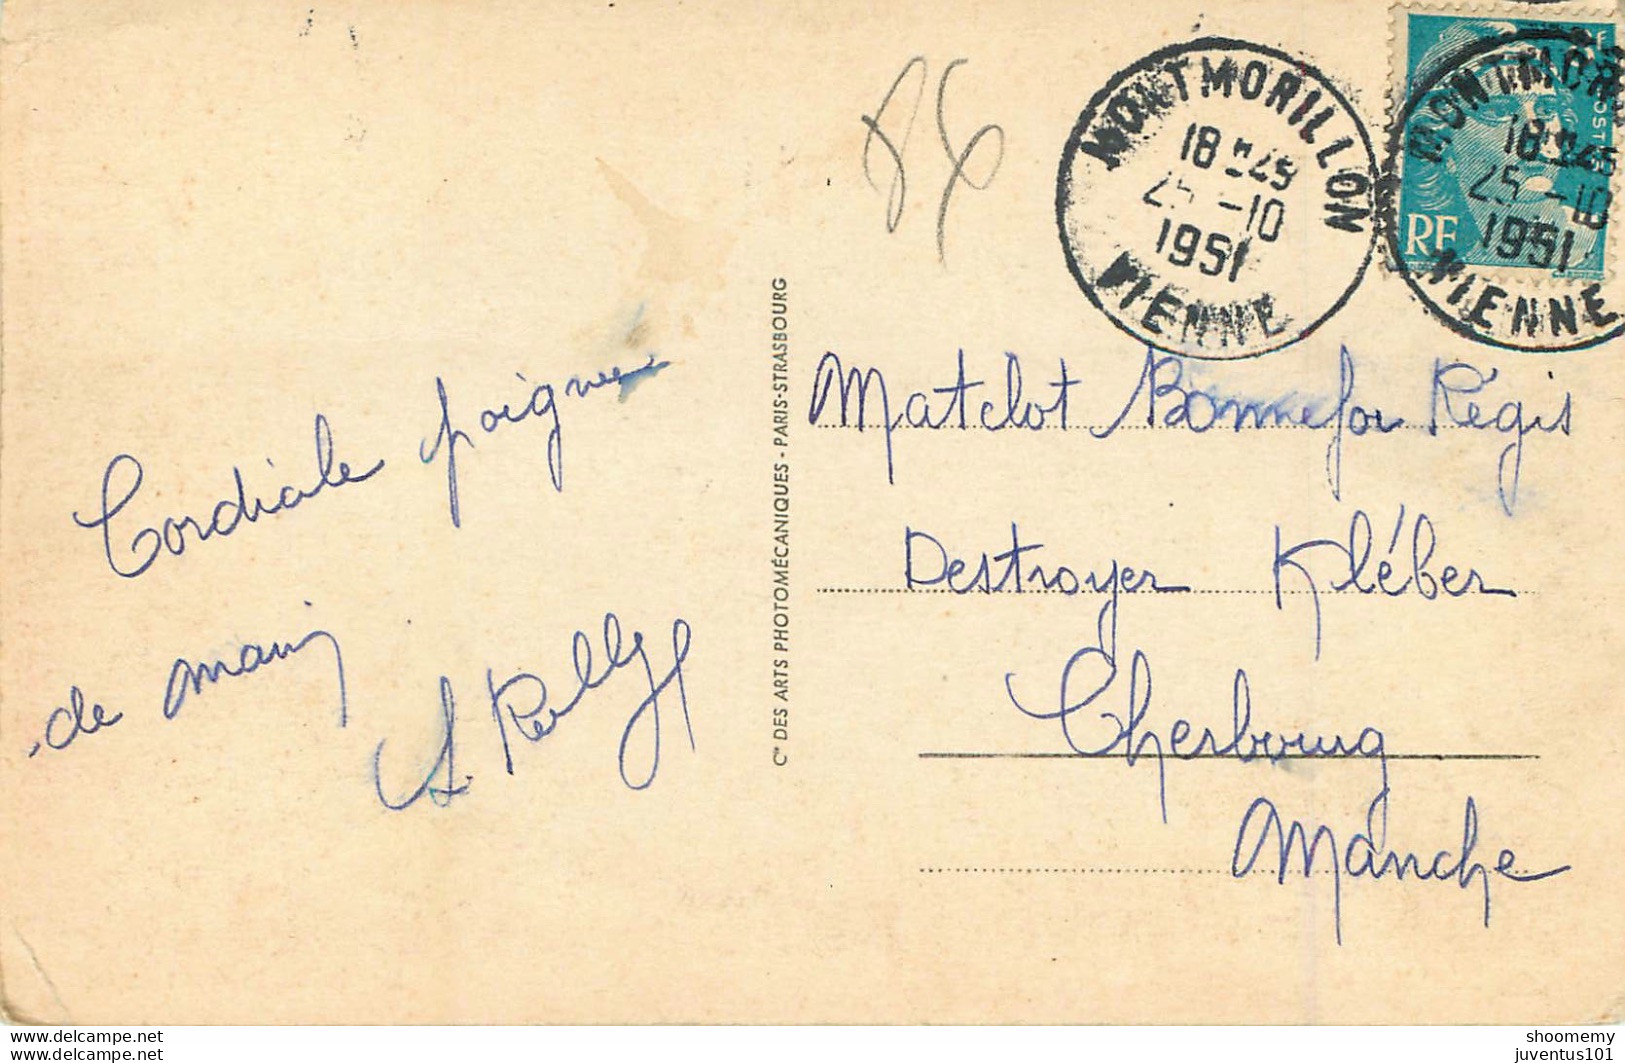 86
MONTMORILLON
18 45
25 -10
1951
VIENNE
RF
POSTES
MONTMOR
18 45
25 -10
1951
VIENNE
Cordiale poignée
de main
Matelot Bonnefoy Régis
Destroyer Kléber
Cherbourg
Manche
Cie DES ARTS PHOTOMÉCANIQUES - PARIS-STRASBOURG
www.delcampe.net
juventus101
shoomemy
juventus101